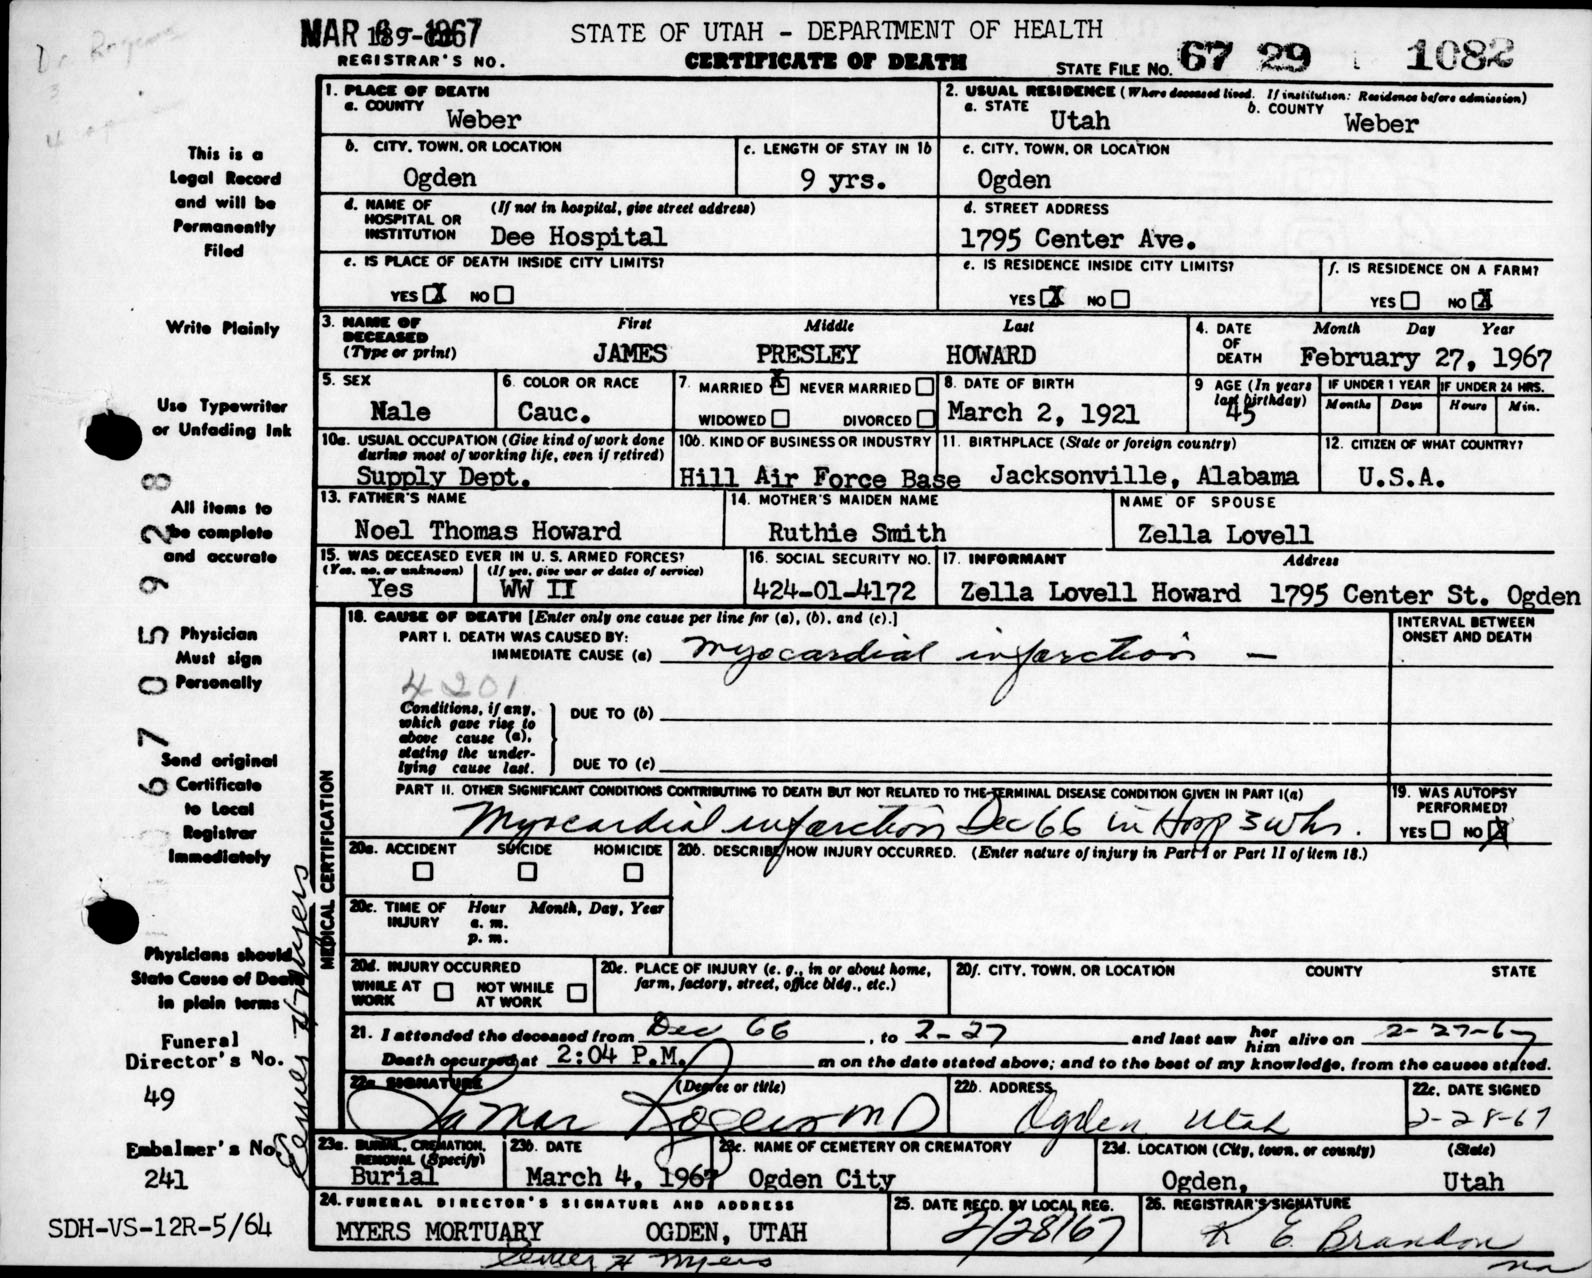 Dr. Rogers
MAR 6 1967
STATE OF UTAH - DEPARTMENT OF HEALTH
REGISTRAR'S NO.
CERTIFICATE OF DEATH
STATE FILE NO. 67 29 1082
This is a
Legal Record
and will be
Permanently
Filed
Write Plainly
Use Typewriter
or Unfading Ink
All items to
be complete
and accurate
Physician
Must sign
Personally
Send original
Certificate
to Local
Registrar
Immediately
Physicians should
State Cause of Death
in plain terms
Funeral
Director's No.
49
Embalmer's No.
241
SDH-VS-12R-5/64
67059228
1. PLACE OF DEATH
a. COUNTY
Weber
2. USUAL RESIDENCE (Where deceased lived. If institution: Residence before admission)
a. STATE
Utah
b. COUNTY
Weber
b. CITY, TOWN, OR LOCATION
Ogden
c. LENGTH OF STAY IN 1b
9 yrs.
c. CITY, TOWN, OR LOCATION
Ogden
d. NAME OF HOSPITAL OR INSTITUTION
(If not in hospital, give street address)
Dee Hospital
d. STREET ADDRESS
1795 Center Ave.
e. IS PLACE OF DEATH INSIDE CITY LIMITS?
YES X NO
e. IS RESIDENCE INSIDE CITY LIMITS?
YES X NO
f. IS RESIDENCE ON A FARM?
YES NO X
3. NAME OF DECEASED
(Type or print)
First Middle Last
JAMES PRESLEY HOWARD
4. DATE OF DEATH
Month Day Year
February 27, 1967
5. SEX
Male
6. COLOR OR RACE
Cauc.
7. MARRIED X NEVER MARRIED
WIDOWED DIVORCED
8. DATE OF BIRTH
March 2, 1921
9 AGE (In years last birthday)
45
IF UNDER 1 YEAR
Months Days
IF UNDER 24 HRS.
Hours Min.
10a. USUAL OCCUPATION (Give kind of work done
during most of working life, even if retired)
Supply Dept.
10b. KIND OF BUSINESS OR INDUSTRY
Hill Air Force Base
11. BIRTHPLACE (State or foreign country)
Jacksonville, Alabama
12. CITIZEN OF WHAT COUNTRY?
U.S.A.
13. FATHER'S NAME
Noel Thomas Howard
14. MOTHER'S MAIDEN NAME
Ruthie Smith
NAME OF SPOUSE
Zella Lovell
15. WAS DECEASED EVER IN U. S. ARMED FORCES?
(Yes, no, or unknown) (If yes, give war or dates of service)
Yes WW II
16. SOCIAL SECURITY NO.
424-01-4172
17. INFORMANT Address
Zella Lovell Howard 1795 Center St. Ogden
MEDICAL CERTIFICATION
18. CAUSE OF DEATH [Enter only one cause per line for (a), (b), and (c).]
PART I. DEATH WAS CAUSED BY:
IMMEDIATE CAUSE (a) Myocardial infarction —
INTERVAL BETWEEN
ONSET AND DEATH
4201
Conditions, if any,
which gave rise to
above cause (a),
stating the under-
lying cause last.
DUE TO (b)
DUE TO (c)
PART II. OTHER SIGNIFICANT CONDITIONS CONTRIBUTING TO DEATH BUT NOT RELATED TO THE TERMINAL DISEASE CONDITION GIVEN IN PART I(a)
Myocardial infarction Dec 66 in Hosp 3 wks.
19. WAS AUTOPSY
PERFORMED?
YES NO X
20a. ACCIDENT SUICIDE HOMICIDE
20b. DESCRIBE HOW INJURY OCCURRED. (Enter nature of injury in Part I or Part II of item 18.)
20c. TIME OF INJURY
Hour Month, Day, Year
a. m.
p. m.
20d. INJURY OCCURRED
WHILE AT WORK NOT WHILE AT WORK
20e. PLACE OF INJURY (e. g., in or about home,
farm, factory, street, office bldg., etc.)
20f. CITY, TOWN, OR LOCATION COUNTY STATE
21. I attended the deceased from Dec 66, to 2-27 and last saw her him alive on 2-27-67
Death occurred at 2:04 P.M. m on the date stated above; and to the best of my knowledge, from the causes stated.
22a. SIGNATURE (Degree or title)
LaMar Rogers MD
22b. ADDRESS
Ogden Utah
22c. DATE SIGNED
2-28-67
23a. BURIAL, CREMATION, REMOVAL (Specify)
Burial
23b. DATE
March 4, 1967
23c. NAME OF CEMETERY OR CREMATORY
Ogden City
23d. LOCATION (City, town, or county) (State)
Ogden, Utah
24. FUNERAL DIRECTOR'S SIGNATURE AND ADDRESS
MYERS MORTUARY OGDEN, UTAH
25. DATE RECD. BY LOCAL REG.
2/28/67
26. REGISTRAR'S SIGNATURE
K E Brandon